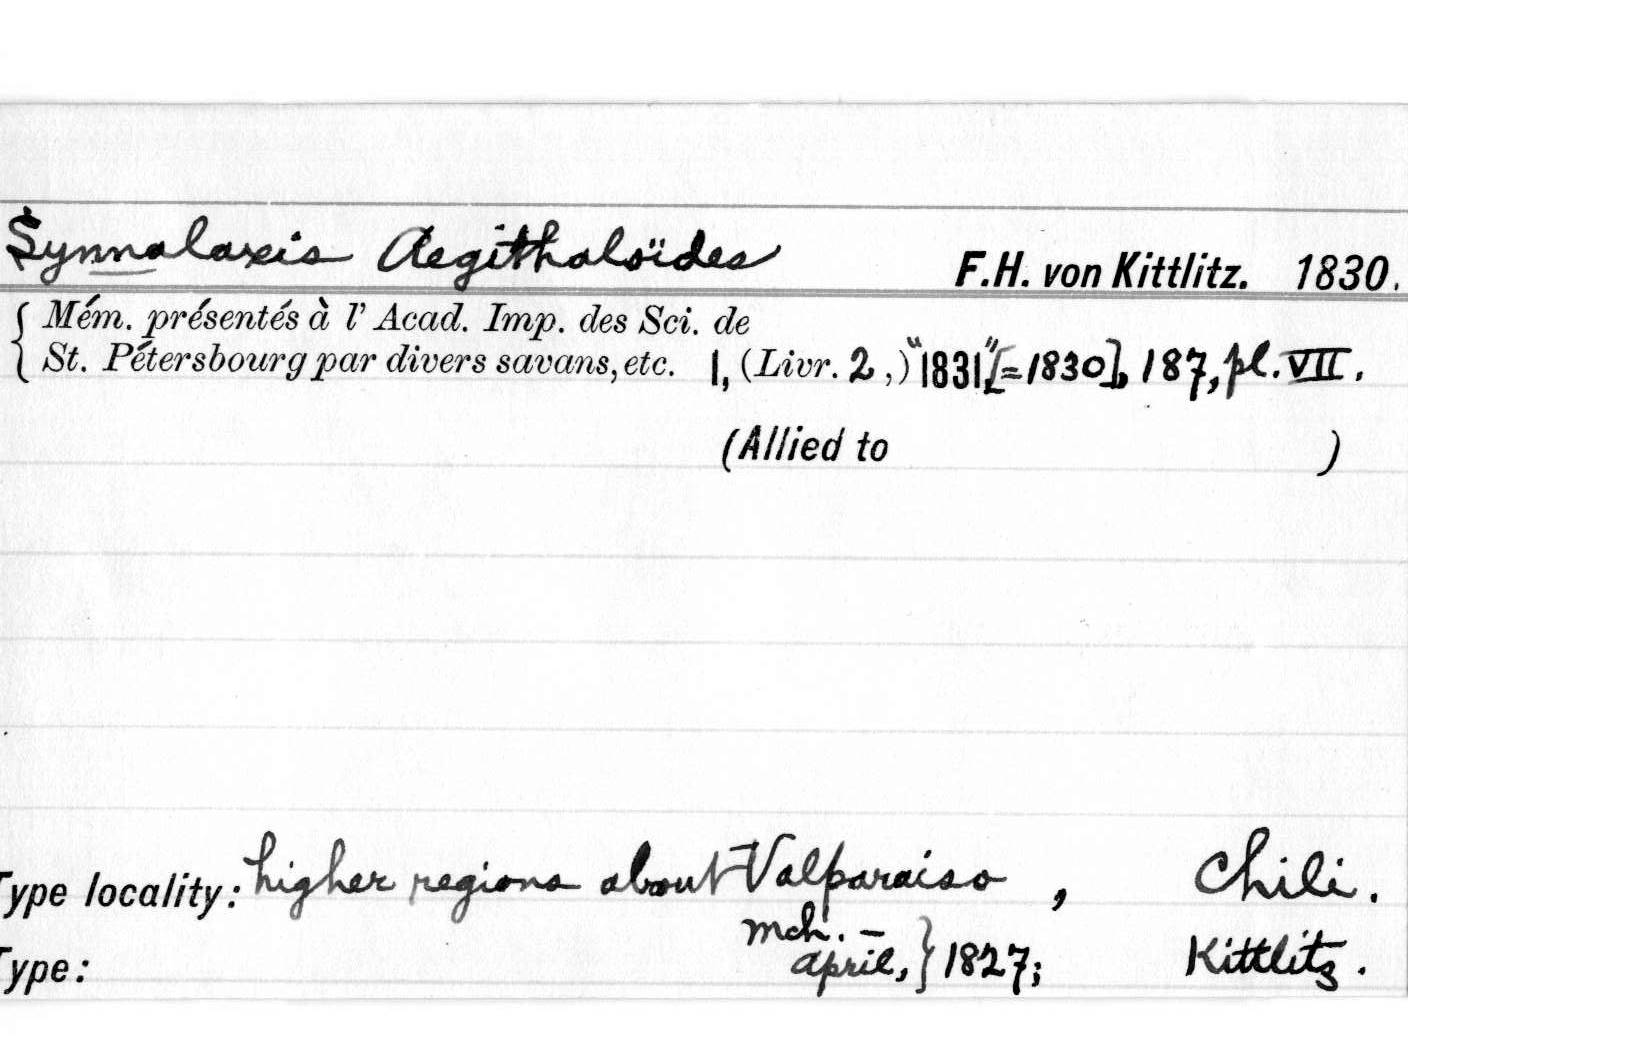 Synnalaxis Aegithaloïdes F.H. von Kittlitz. 1830.
Mém. présentés à l' Acad. Imp. des Sci. de
St. Pétersbourg par divers savans, etc. 1, (Livr. 2,) "1831" [=1830], 187, pl. VII.
(Allied to )
Type locality: higher regions about Valparaiso, Chili.
mch. –
Type: april, } 1827; Kittlitz.